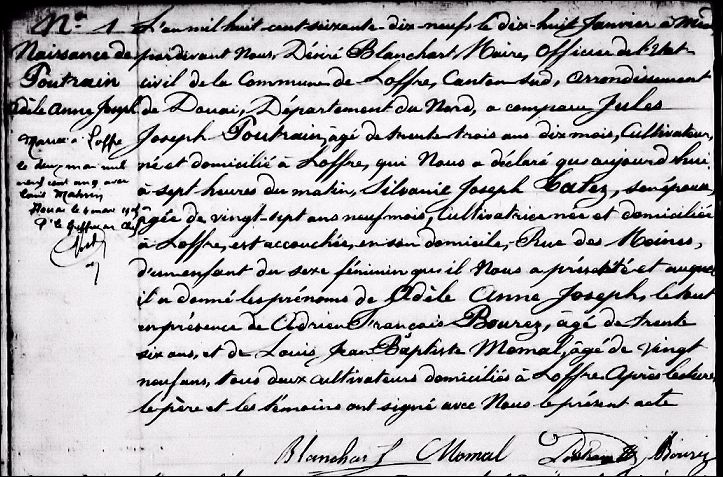 N° 1
Naissance de
Poutrain
Adèle Anne Joseph
Mariée à Loffre
le deux mai mil
neuf cent un, avec
Louis
Douai le 4 mars
L'an mil huit cent soixante-dix-neuf, le dix-huit Janvier à midi
pardevant Nous, Désiré Blanchart, Maire, Officier de l'Etat-
civil de la Commune de Loffre, Canton sud, arrondissement
de Douai, Département du Nord, a comparu Jules
Joseph Poutrain, âgé de trente trois ans dix mois, Cultivateur,
né et domicilié à Loffre, qui Nous a déclaré que aujourd'hui
à sept heures du matin, Silvanie Joseph Catez, son épouse,
âgée de vingt-sept ans neuf mois, Cultivatrice née et domiciliée
à Loffre, est accouchée, en son domicile, Rue des Moines,
d'un enfant du sexe féminin qu'il Nous a présenté et auquel
il a donné les prénoms de Adèle Anne Joseph, le tout
en présence de Adrien François Bourez, âgé de trente
six ans, et de Louis Jean Baptiste Momal, âgé de vingt
neuf ans, tous deux cultivateurs domiciliés à Loffre. Après lecture,
le père et les témoins ont signé avec Nous le présent acte
Blanchart Momal Poutrain Bourez